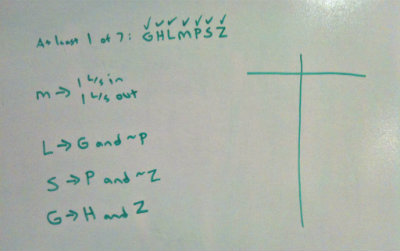 At least 1 of 7: GHLMPSZ
✓✓✓✓✓✓✓
M → 1 L/S in
1 L/S out
L → G and ~P
S → P and ~Z
G → H and Z